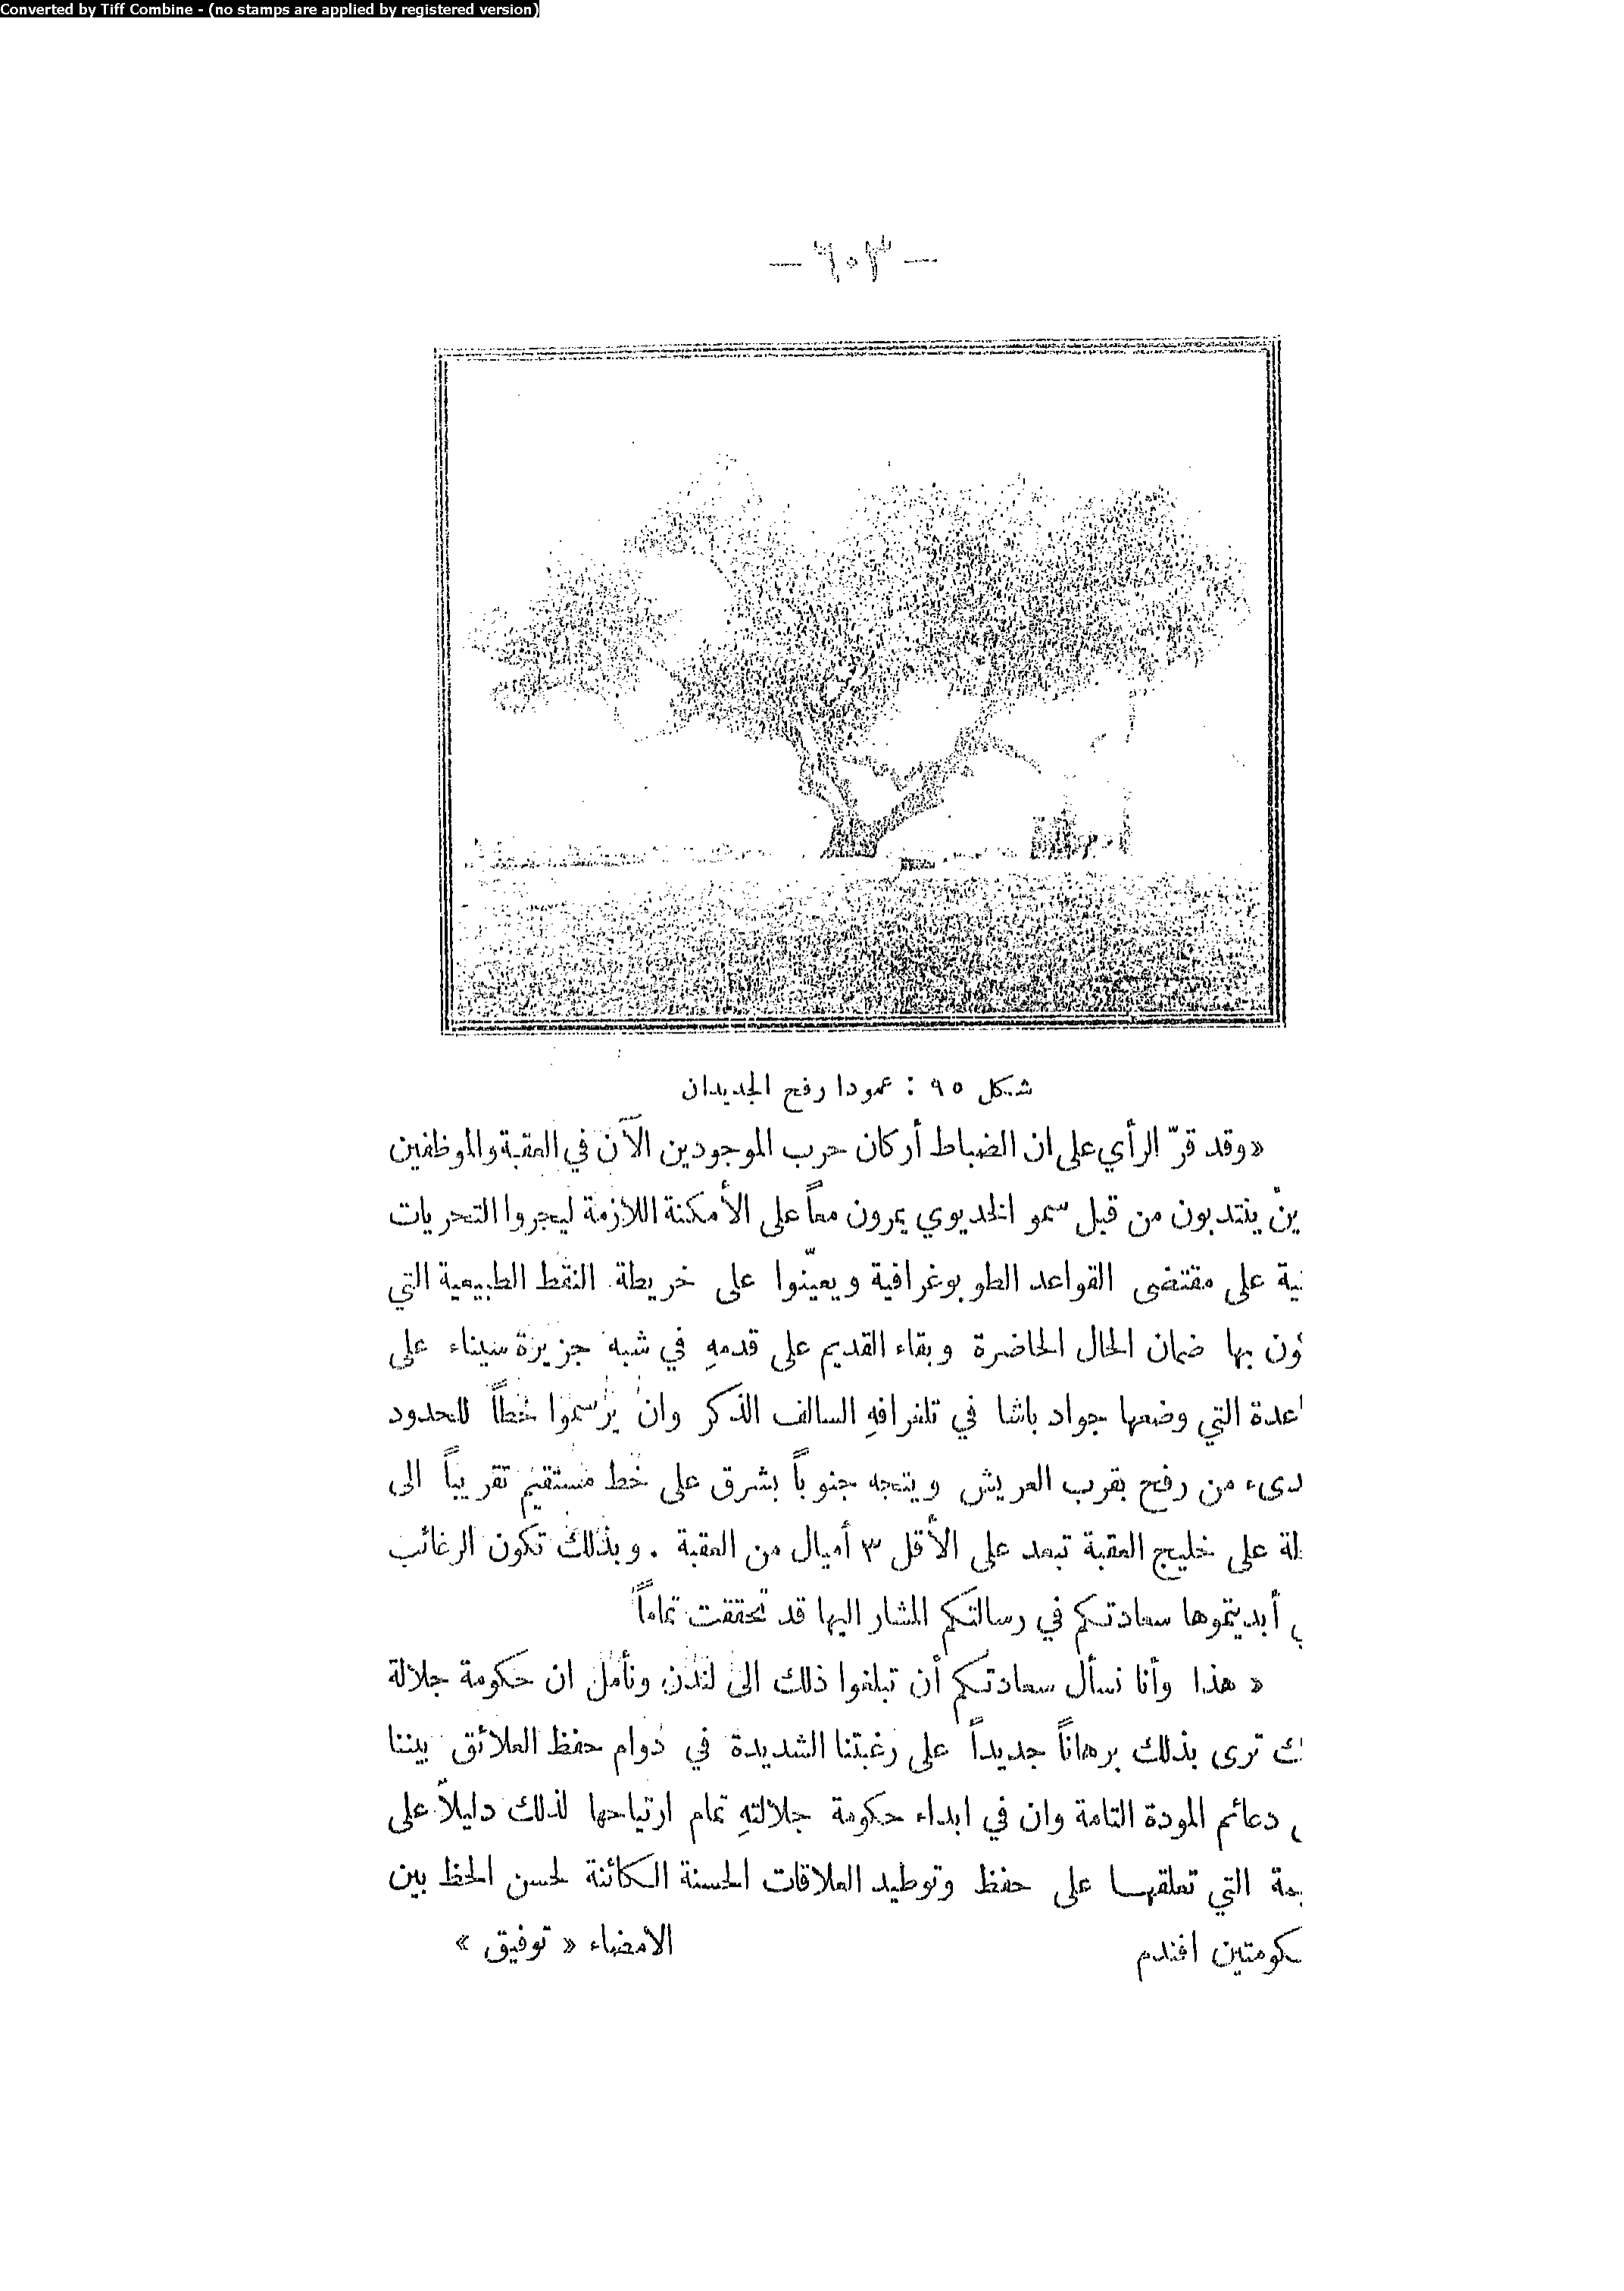 Converted by Tiff Combine - (no stamps are applied by registered version)
— ٦٠٣ —
شكل ٩٥ : عمودا رفح الجديدان
«وقد قرّ الرأي على ان الضباط أركان حرب الموجودين الآن في العقبة والموظفين
ين ينتدبون من قبل سمو الخديوي يمرون معاً على الأمكنة اللازمة ليجروا التحريات
ية على مقتضى القواعد الطوبوغرافية ويعيّنوا على خريطة النقط الطبيعية التي
ون بها ضمان الحال الحاضرة وبقاء القديم على قدمهِ في شبه جزيرة سيناء على
اعدة التي وضعها جواد باشا في تلغرافهِ السالف الذكر وان يرسموا خطاً للحدود
دىء من رفح بقرب العريش ويتجه جنوباً بشرق على خط مستقيم تقريباً الى
لة على خليج العقبة تبعد على الأقل ٣ أميال من العقبة . وبذلك تكون الرغائب
أبديتموها سعادتكم في رسالتكم المشار اليها قد تحققت تماماً
« هذا وأنا نسأل سعادتكم أن تبلغوا ذلك الى لندن ونأمل ان حكومة جلالة
ك ترى بذلك برهاناً جديداً على رغبتنا الشديدة في دوام حفظ العلائق بيننا
دعائم المودة التامة وان في ابداء حكومة جلالتهِ تمام ارتياحها لذلك دليلاً على
مة التي تعلقها على حفظ وتوطيد العلاقات الحسنة الكائنة لحسن الحظ بين
كومتين افندم الامضاء « توفيق »